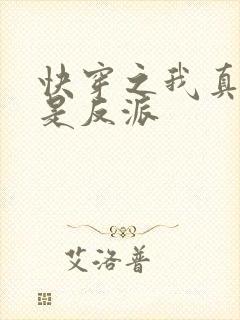 快穿之我真
是反派
艾洛普